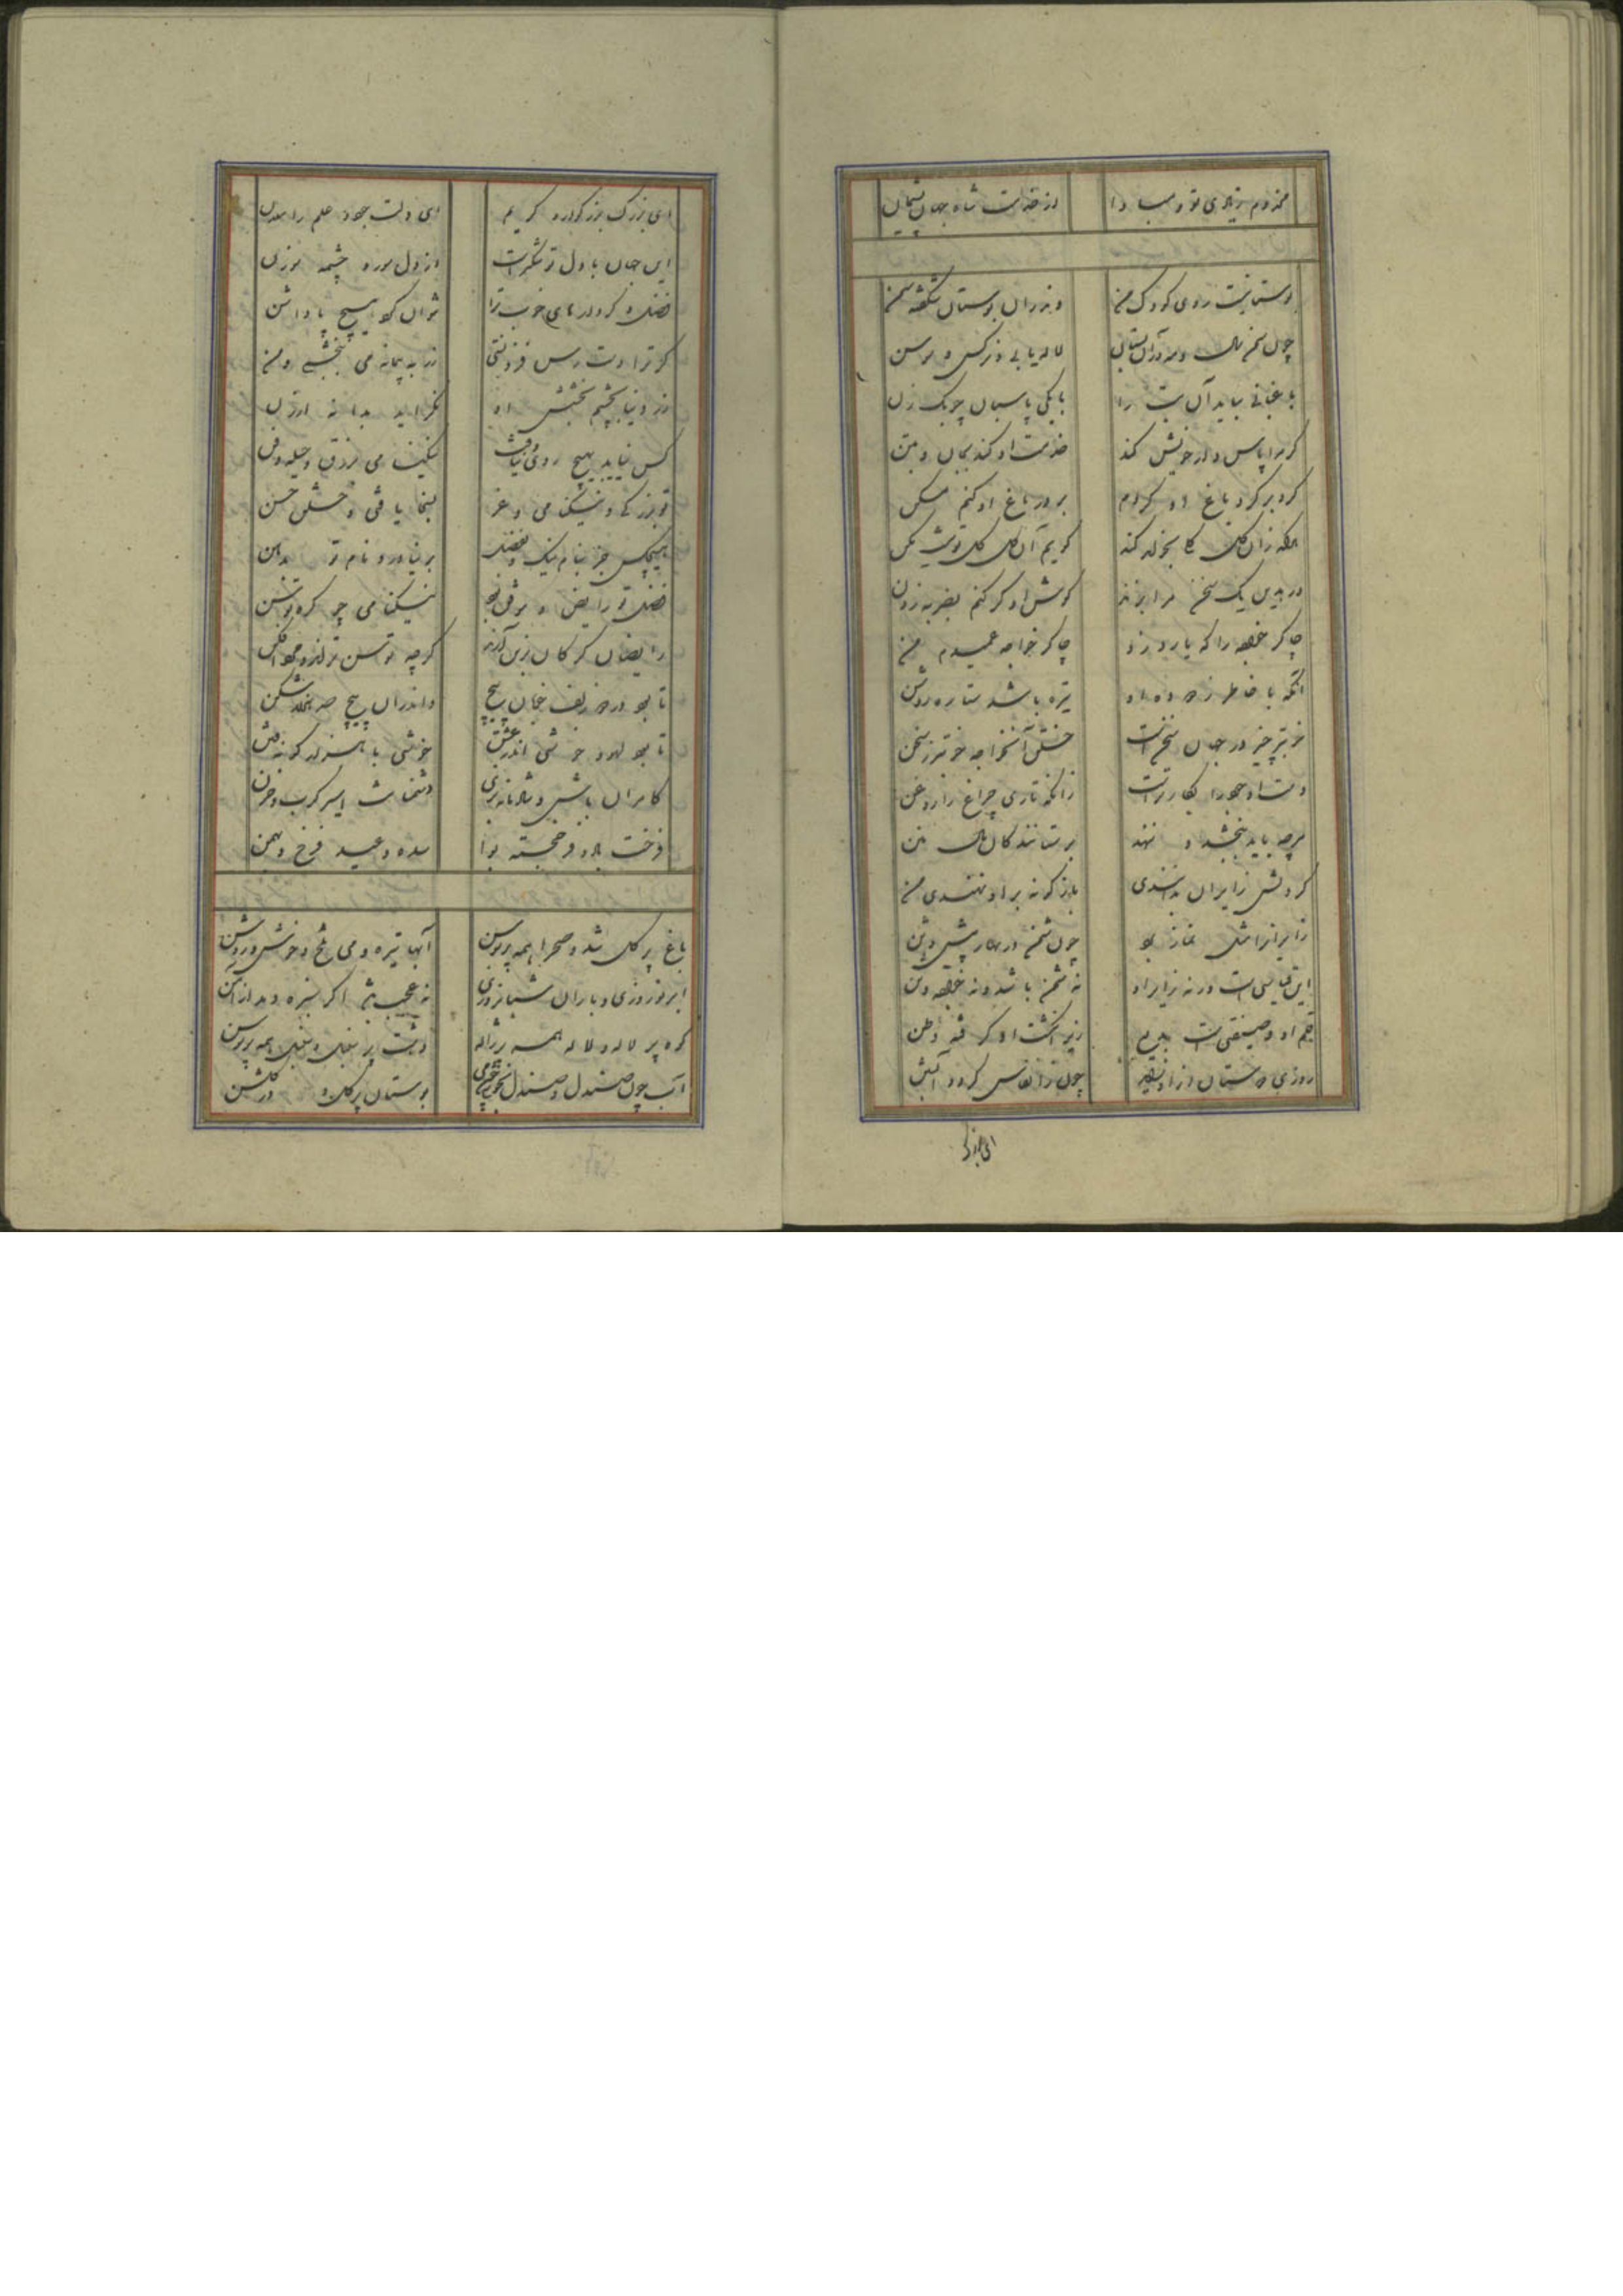 مخدوم زیادی تو و مبادا
از خدمت شاه جهان پشیمان
بوستانیست روی کودک من
وندران بوستان شکفته سمن
چون سخن
لاله یابی و نرگس و سوسن
باغبانی بباید آن بت را
یا یکی پاسبان چوبک زن
گر مرا پاس دار خویش کند
خدمت او کنم بجان و بتن
گرد بر گرد باغ او گردم
بر در باغ او کنم مسکن
هر که زان گل گلی بخواهد کند
گویم آن گل گل تو نیست مکن
ور بدین یک سخن مرا بزند
گوش او کر کنم بضربه زدن
چاکر خواجه را که یارد زد
چاکر خواجه عمیدم من
آنکه با خاطر زدوده او
تیره باشد ستاره روشن
خوبتر چیز در جهان سخن است
خلق آن خواجه خوبتر ز سخن
دست او جود را بکارترست
زانکه تاری چراغ را روغن
هرچه یابد ببخشد و ننهد
برستانند گان بی من
گردنش زایران بدانندی
باز گونه بر او نهندی من
زایر او را مثل نماز برد
چون شمن در بهار پیش وثن
این قیاسی است ورنه زایر او
نه شمن باشد و نه خواجه وثن
قلم او و صیقلی است بدیع
زیر انگشت او گرفته وطن
روزی دوستان از او بنظیر
چون ز انفاس گردد آبستن
ای بزرگ
ای بزرگ بزرگوار و کریم
ای دلت جود و علم را معدن
این جهان با دل تو تنگتر است
از دل مور و چشمه سوزن
فضل و کردارهای خوب ترا
نتوان کرد هیچ پاداشن
گر ترا دسترس فزونستی
زر به پیمانه می ببخشی و من
زر و دنیا بچشم بخشش او
نگراید بدانه ارزن
کس نیابد بهیچ روی نیافت
نیکنامی بزرق و حیله و فن
تو بزرگی و نیکنامی و عز
بسخا یافتی و خلق حسن
هیچکس جز بنام نیک و بفضل
بر نیاورد نام تو بدهن
فضل تو رایض است و موفق بود
نیکنامی چو کره توسن
رایضان کرگان بزین آرند
گرچه توسن ترند و مردافکن
تا بود در دو زلف خوبان پیچ
واندران پیچ صد هزار شکن
تا بود لهو و خوشی اندر عشق
خوشی با هزار گونه فتن
کامران باش و شادمانه بزی
دشمنانت اسیر کرب و حزن
فرخت باد و فر خجسته بوا
سده و عید فرخ و بهمن
باغ پر گل شد و صحرا همه پر سوسن
آبها تیره و می تلخ و خوش و روشن
ابر نوروزی و باران شبانروزی
نه عجب باشد اگر سبزه دمد از آهن
کوه پر لاله و لاله همه پر ژاله
دشت پر سنبل و سنبل همه پر سوسن
آب چون صندل و صندل بخوشی چون می
بوستان پر گل و گل در گلشن